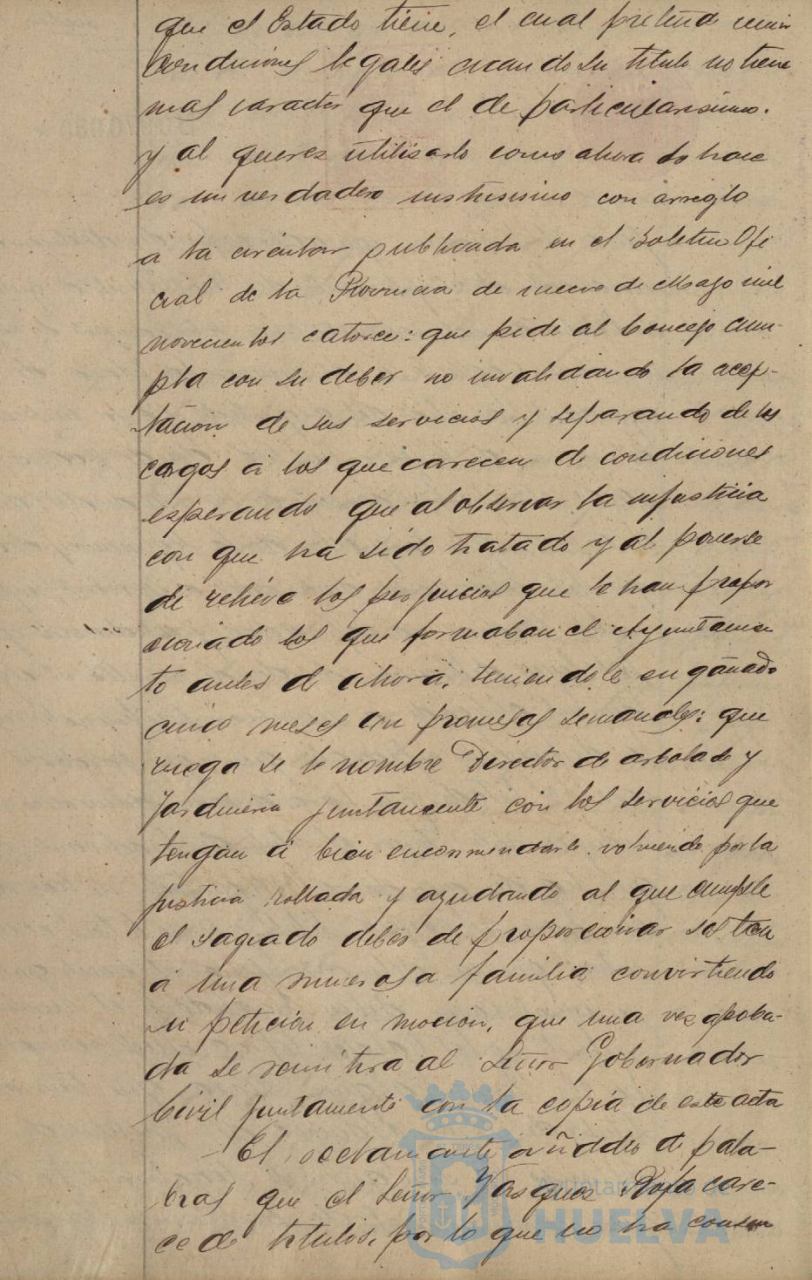 que el Estado tiene, el cual pretende reunir
condiciones legales cuando su titulo no tiene
mas caracter que el de particularisimo.
y al querer utilisarlo como ahora lo hace
es un verdadero con arreglo
a la circular publicada en el Boletin Ofi
cial de la Provincia de nueve de Mayo mil
novecientos catorce: que pide al Concejo cum-
pla con su deber no invalidando la acep-
tacion de sus servicios y separando de los
cargos á los que carecen de condiciones
esperando que al observar la injusticia
con que ha sido tratado y al ponerse
de relieve los perjuicios que le han propor
cionado los que formaban el Ayuntamien
to antes de ahora, teniendole engañado
cinco meses con promesas semanales: que
ruega se le nombre Director de arbolado y
Jardineria juntamente con los servicios que
tengan á bien encomendarle volviendo por la
justicia hollada y ayudando al que cumple
el sagrado deber de proporcionar sosten
á una numerosa familia convirtiendo
su petición en moción, que una vez aproba-
da se remitira al Señor Gobernador
Civil juntamente con la copia de este acta
El reclamante añadio de pala-
bras que el Señor Vasquez Rofa care-
ce de titulos, por lo que no ha consen
Ayuntamiento de
HUELVA